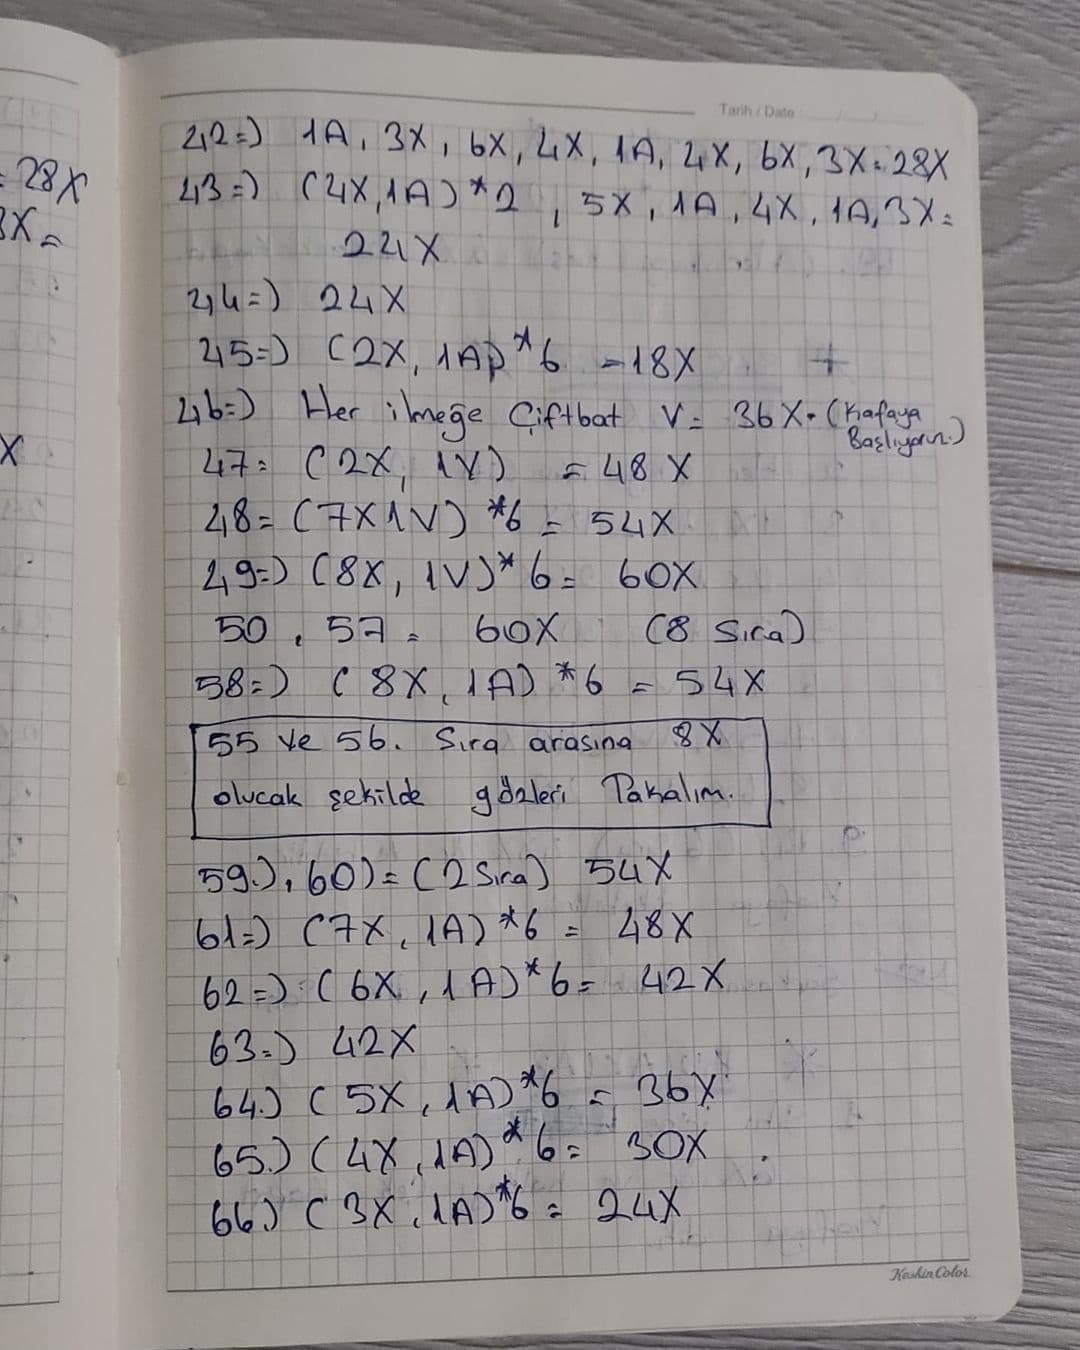 Tarih / Date
= 28X
3X =
X
42=) 1A, 3X, 6X, 4X, 1A, 4X, 6X, 3X = 28X
43=) (4X,1A)*2, 5X, 1A, 4X, 1A, 3X =
24X
44=) 24X
45=) (2X, 1A)*6 = 18X
46=) Her ilmeğe Çiftbat V = 36X. (Kafaya
Başlıyoruz.)
47= (2X, 1V) = 48 X
48= (7X1V) *6 = 54X
49=) (8X, 1V)*6= 60X
50, 57 = 60X (8 Sıra)
58=) (8X, 1A) *6 = 54X
55 ve 56. Sıra arasına 8X
olucak şekilde gözleri Takalım.
59.), 60)= (2 Sıra) 54X
61=) (7X, 1A) *6 = 48X
62=) (6X, 1A)*6= 42X
63=) 42X
64.) (5X, 1A)*6 = 36X
65.) (4X, 1A)*6= 30X
66) (3X, 1A)*6 = 24X
KeskinColor